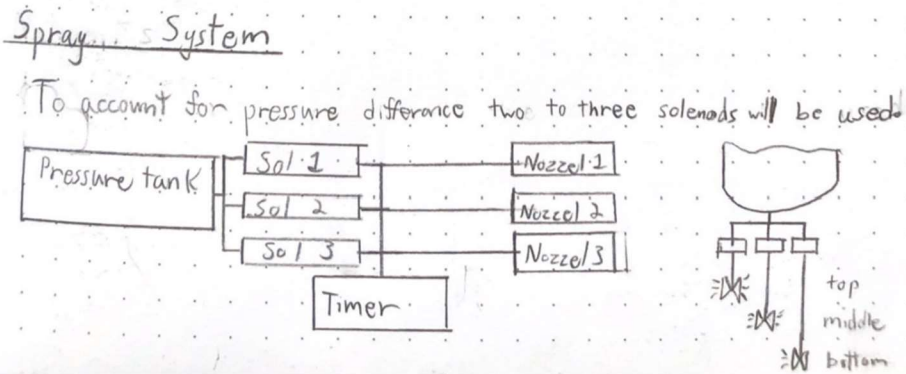 Spray System
To account for pressure differance two to three solenods will be used
Pressure tank
Sol 1
Nozzel 1
Sol 2
Nozzel 2
Sol 3
Nozzel 3
Timer
top
middle
bottom